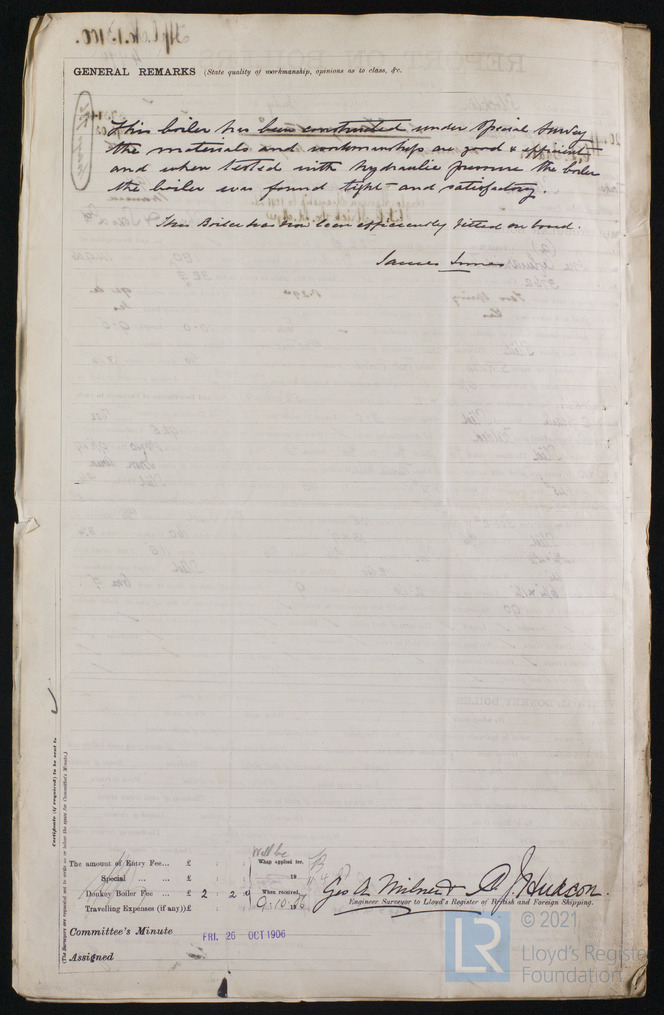 GENERAL REMARKS (State quality of workmanship, opinions as to class, &c.
This boiler has been constructed under Special Survey
the materials and workmanship are good & efficient
and when tested with hydraulic pressure the boiler
the boiler was found tight and satisfactory.
This Boiler has now been efficiently fitted on board.
James Innes
Certificate (if required) to be sent to
(The Surveyors are requested not to write on or below the space for Committee's Minute.)
The amount of Entry Fee... £ : : When applied for,
Special ... ... £ : : 19
Donkey Boiler Fee ... £ 2 : 2 : 0 When received,
Travelling Expenses (if any) £ : : 9.10.06
Geo A. Milner & A. J. Hudson.
Engineer Surveyor to Lloyd's Register of British and Foreign Shipping.
Committee's Minute FRI. 26 OCT 1906
Assigned
LR © 2021
Lloyd's Register
Foundation